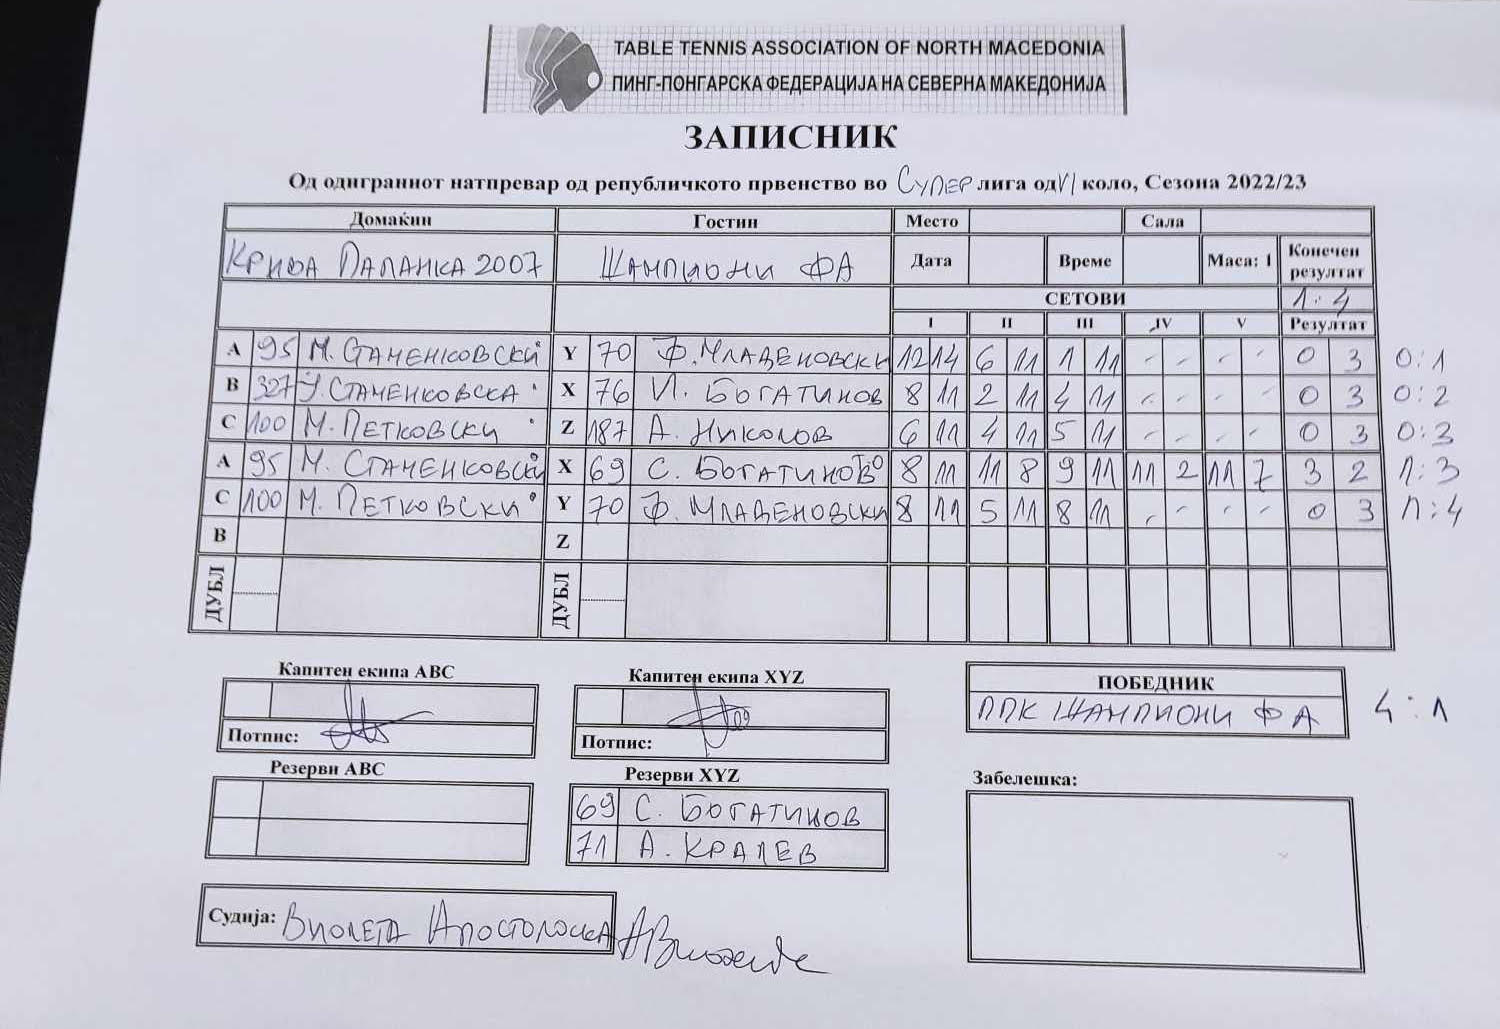 TABLE TENNIS ASSOCIATION OF NORTH MACEDONIA
ПИНГ-ПОНГАРСКА ФЕДЕРАЦИЈА НА СЕВЕРНА МАКЕДОНИЈА
ЗАПИСНИК
Од одиграниот натпревар од републичкото првенство во СУПЕР лига од VI коло, Сезона 2022/23
Домаќин Гостин Место Сала
КРИВА ПАЛАНКА 2007 ШАМПИОНИ ФА Дата Време Маса: 1 Конечен резултат
СЕТОВИ 1:4
I II III IV V Резултат
A 95 М. СТАМЕНКОВСКИ Y 70 Ф. МЛАДЕНОВСКИ 12 14 6 11 1 11 - - - - 0 3 0:1
B 327 Ј. СТАМЕНКОВСКА X 76 И. БОГАТИНОВ 8 11 2 11 4 11 - - - - 0 3 0:2
C 100 М. ПЕТКОВСКИ Z 187 А. НИКОЛОВ 6 11 4 11 5 11 - - - - 0 3 0:3
A 95 М. СТАМЕНКОВСКИ X 69 С. БОГАТИНОВ 8 11 11 8 9 11 11 2 11 7 3 2 1:3
C 100 М. ПЕТКОВСКИ Y 70 Ф. МЛАДЕНОВСКИ 8 11 5 11 8 11 - - - - 0 3 1:4
B Z
ДУБЛ ДУБЛ
Капитен екипа ABC Капитен екипа XYZ ПОБЕДНИК
ППК ШАМПИОНИ ФА 4:1
Потпис: Потпис:
Резерви ABC Резерви XYZ Забелешка:
69 С. БОГАТИНОВ
71 А. КРАЛЕВ
Судија: ВИОЛЕТА АПОСТОЛОСКА